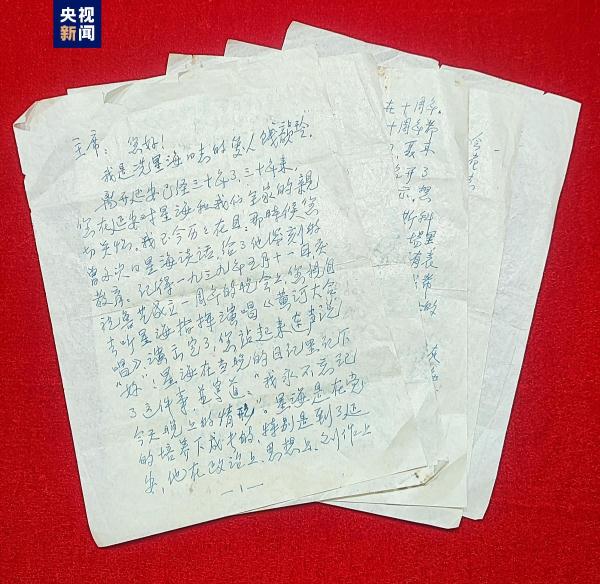 央视
新闻
主席：您好！
我是洗星海同志的爱人钱韵玲，
离开延安已经三十年了，三十年来，
您在延安对星海和我们全家的亲
切关怀，我至今历历在目：那时候您
曾多次同星海谈话，给了他深刻的
教育。记得一九三九年五月十一日庆
祝鲁艺成立一周年的晚会上，您亲自
去听星海指挥演唱《黄河大合
唱》，演出完了，您站起来连声说
"好"！星海在当晚的日记里记下
了这件事并写道："我永不忘记
今天晚上的情形"。星海是在党
的培养下成长的，特别是到了延
安，他在政治上、思想上、创作上
—1—
在十周年
十周年